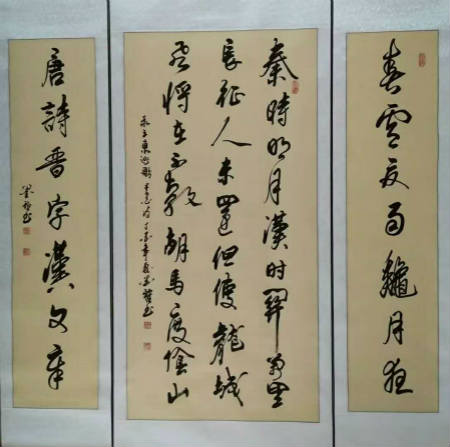 春雲夏雨龝月夜
秦時明月漢时關萬里
長征人未還但使龍城
飛將在不教胡馬度陰山
唐詩晋字漢文章